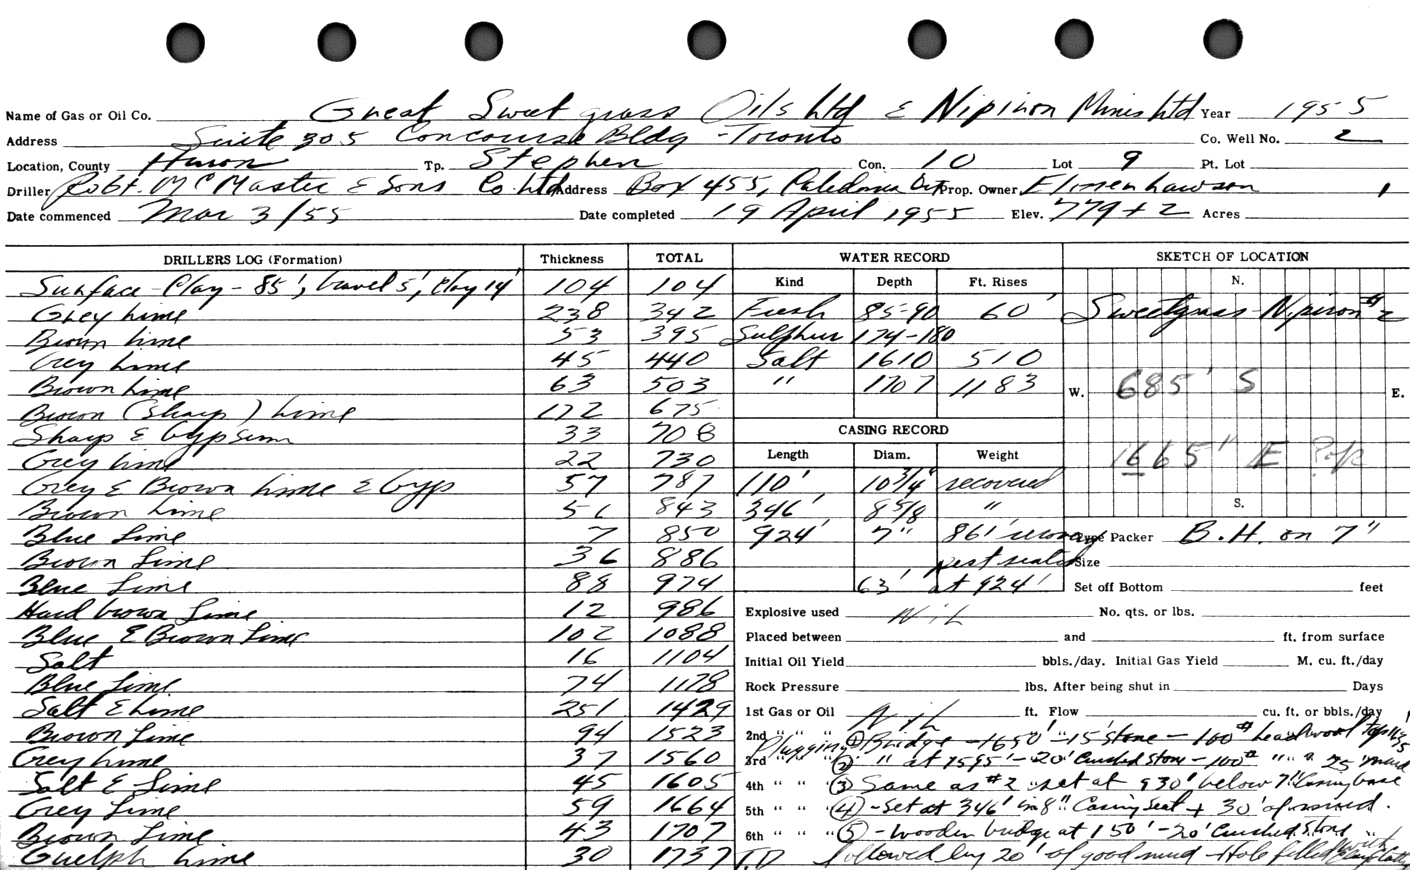 Name of Gas or Oil Co. Great Sweet grass Oils Ltd & Nipiron Mines Ltd Year 1955
Address Suite 305 Concourse Bldg - Toronto Co. Well No. 2
Location, County Huron Tp. Stephen Con. 10 Lot 9 Pt. Lot
Driller Robt. McMaster & Sons Co. Ltd Address Box 455, Caledonia Ont Prop. Owner Elmen Lawson
Date commenced Mar 3/55 Date completed 19 April 1955 Elev. 779+2 Acres
DRILLERS LOG (Formation) Thickness TOTAL WATER RECORD SKETCH OF LOCATION
Surface - Clay - 85', Gravel 5', Clay 14' 104 104 Kind Depth Ft. Rises N.
Grey Lime 238 342 Fresh 85-90 60' Sweetgrass - Nipiron #2
Brown Lime 53 395 Sulphur 174-180
Grey Lime 45 440 Salt 1610 510
Brown Lime 63 503 " 1707 1183 W. 685' S E.
Brown (Sharp) Lime 172 675
Sharp & Gypsum 33 708 CASING RECORD
Grey Lime 22 730 Length Diam. Weight 1665" E
Grey & Brown Lime & Gyp 57 787 110' 10 3/4" recovered
Brown Lime 56 843 346' 8 5/8 " S.
Blue Lime 7 850 924' 7" 861' recovery Type Packer B.H. on 7"
Brown Lime 36 886 Size
Blue Lime 88 974 63' at 924' Set off Bottom feet
Hard brown Lime 12 986 Explosive used Nil No. qts. or lbs.
Blue & Brown Lime 102 1088 Placed between and ft. from surface
Salt 16 1104 Initial Oil Yield bbls./day. Initial Gas Yield M. cu. ft./day
Blue Lime 74 1178 Rock Pressure lbs. After being shut in Days
Salt & Lime 251 1429 1st Gas or Oil Nil ft. Flow cu. ft. or bbls./day
Brown Lime 94 1523 2nd " " " Plugging ① Bridge - 1650' - 15' stone - 100# lead wool
Grey Lime 37 1560 3rd " " " ② " at 1595' - 20' Crushed Stone - 100# " " & 25 mud
Salt & Lime 45 1605 4th " " " ③ Same as #2 set at 930' below 7" Casing base
Grey Lime 59 1664 5th " " " ④ - Set at 346' in 8" Casing seat + 30' of mud.
Brown Lime 43 1707 6th " " " ⑤ - Wooden bridge at 150' - 20' Crushed Stone
Guelph Lime 30 1737 T.D followed by 20' of good mud - Hole filled with